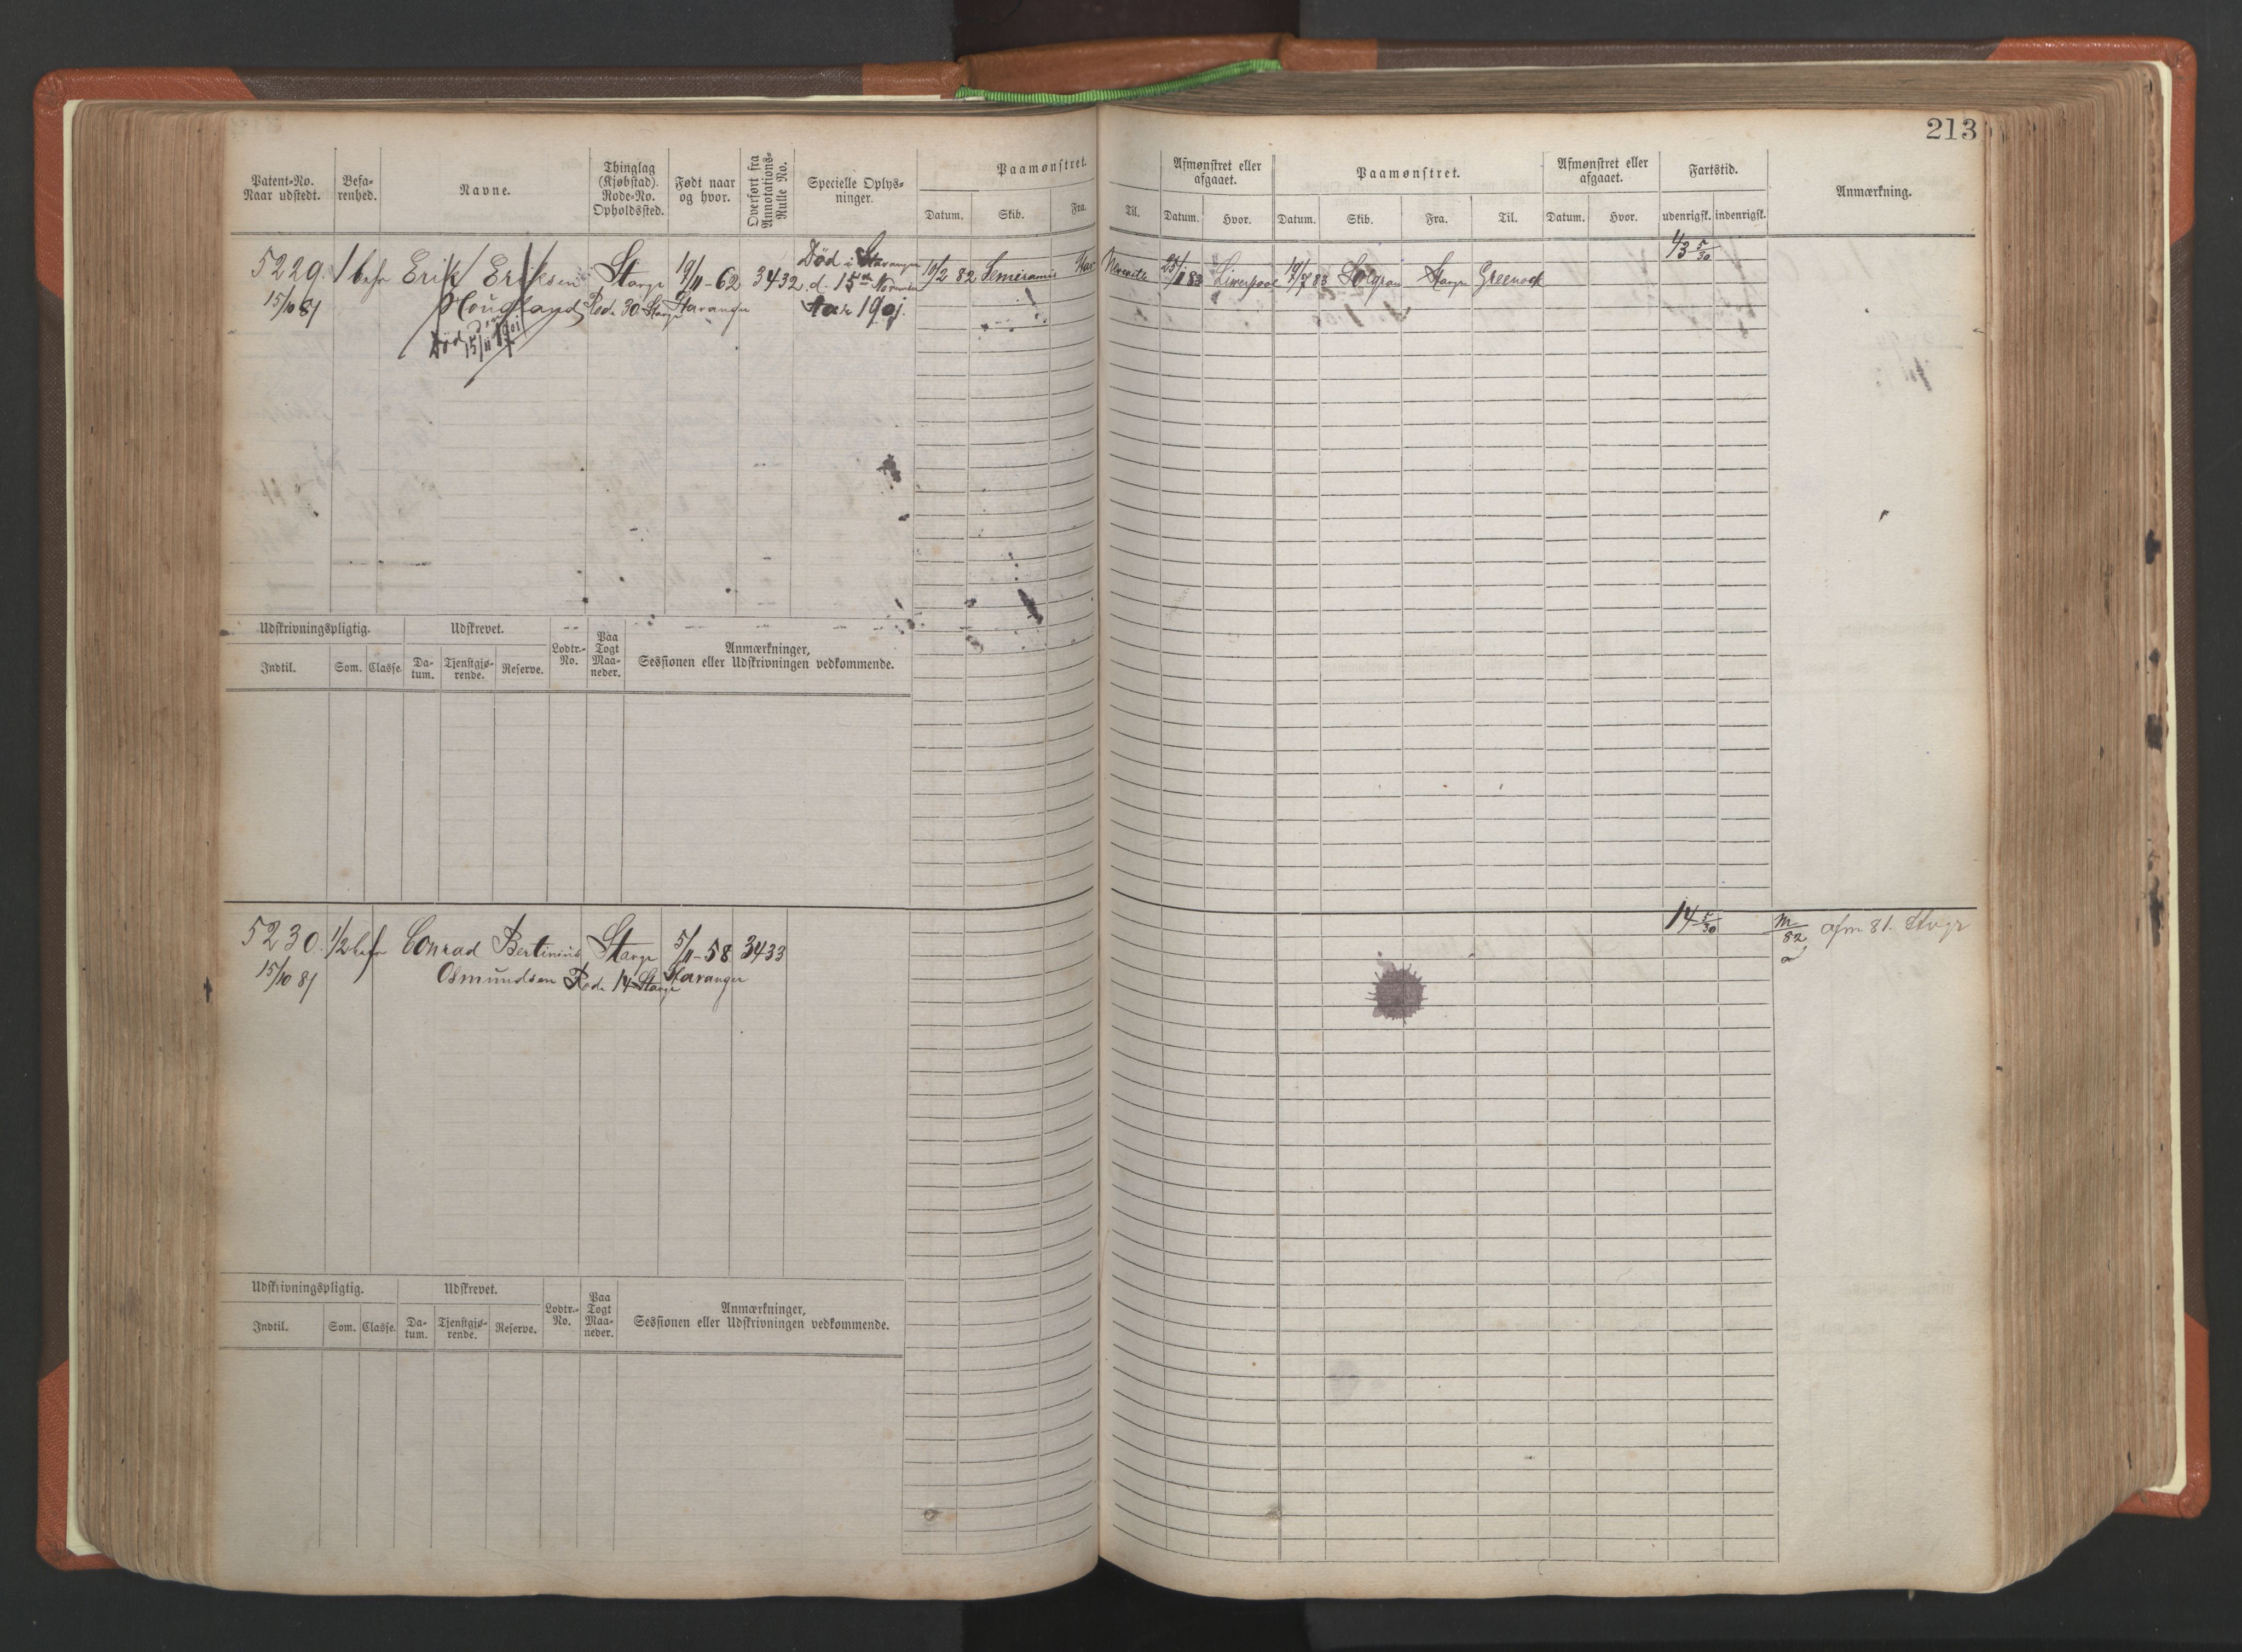 213
Patent-No. Naar udstedt. Befa-renhed. Navne. Thinglag (Kjøbstad). Rode-No. Opholdssted. Født naar og hvor. Overført fra Annotations-Rulle No. Specielle Oplys-ninger. Paamønstret. Afmønstret eller afgaaet. Paamønstret. Afmønstret eller afgaaet. Fartstid. Anmærkning.
Datum. Skib. Fra. Til. Datum. Hvor. Datum. Skib. Fra. Til. Datum. Hvor. udenrigsk. indenrigsk.
43 5/30
5229. 1/1 befr Erik Eriksen Stavgr 19/11-62 3432 Død i Stavanger 10/2 82 Semiramis Stav 25/1 83 Liverpool 19/7 83 Solgran Stavgr Greenock
15/10 81 Hougland Rode 30 Stavgr Stavanger d. 15de Novemb 1901.
Død 15/11 1901
Udskrivningspligtig. Udskrevet. Lodtr.-No. Paa Togt Maa-neder. Anmærkninger, Sessionen eller Udskrivningen vedkommende.
Indtil. Som. Classe. Da-tum. Tjenstgjø-rende. Reserve.
14 5/30
5230. 1/2 befr Conrad Bertinius Stavgr 5/11-58 3433 M/82 afm 81. Stvgr
15/10 81 Osmundsen Rode 14 Stavgr Stavanger
Udskrivningspligtig. Udskrevet. Lodtr.-No. Paa Togt Maa-neder. Anmærkninger, Sessionen eller Udskrivningen vedkommende.
Indtil. Som. Classe. Da-tum. Tjenstgjø-rende. Reserve.